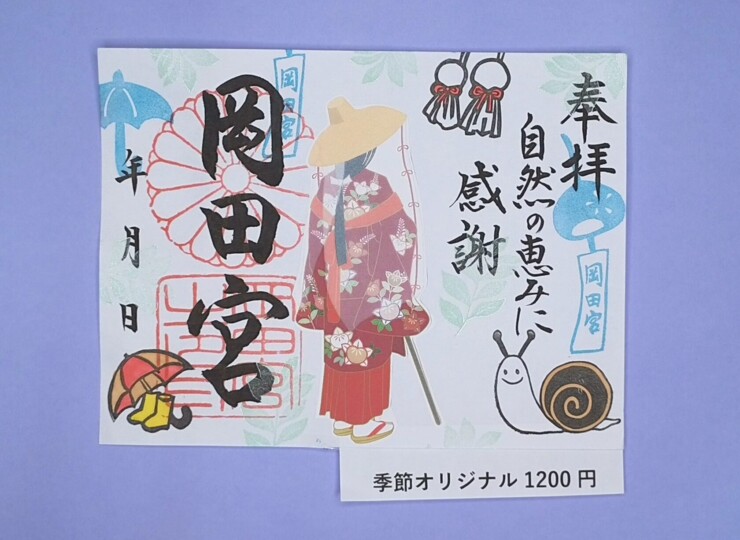 奉拝
自然の恵みに
感謝
岡田宮
岡田宮
岡田宮
年 月 日
季節オリジナル 1200 円